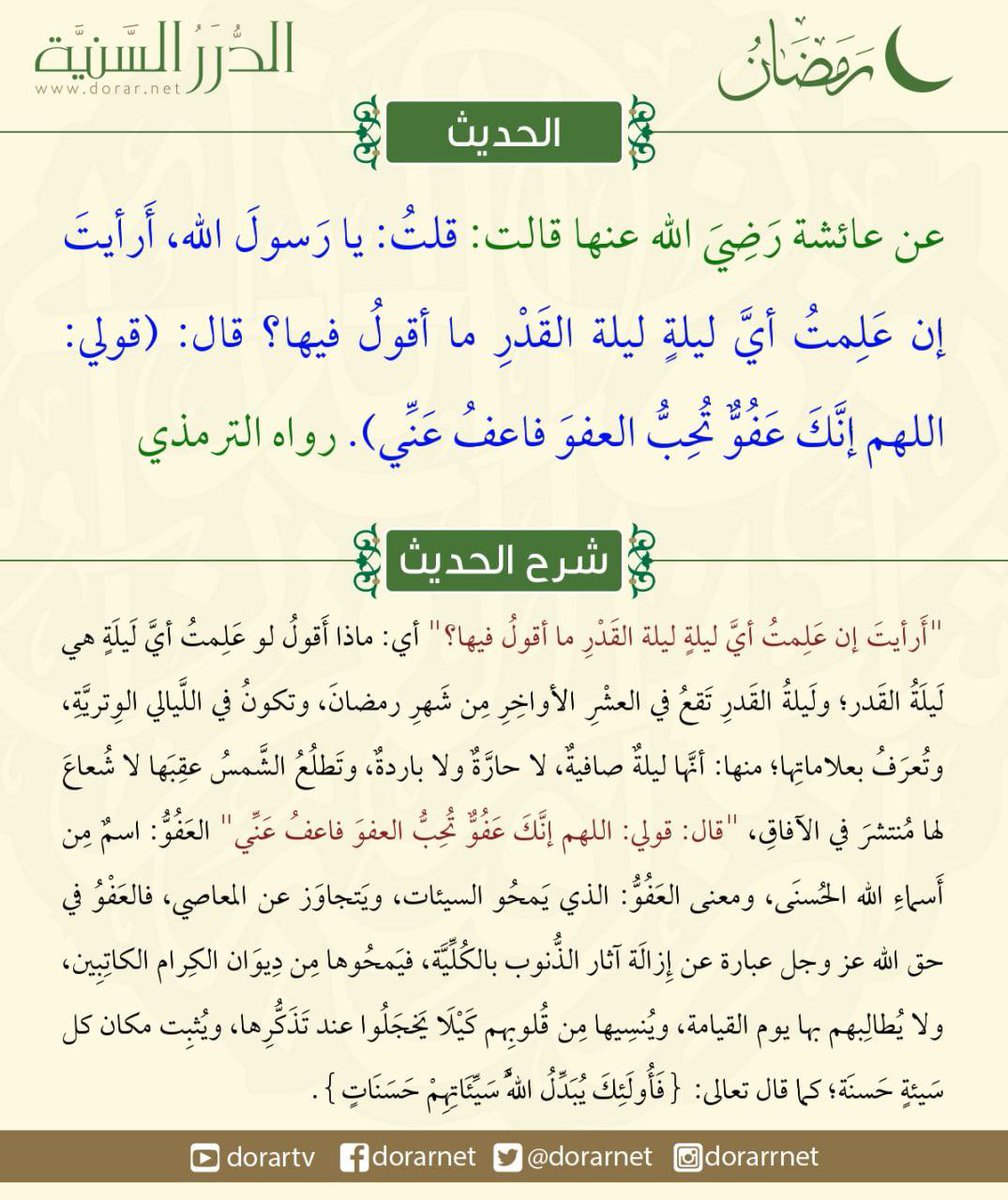 رَمَضَانُ
الدُّرَرُ السَّنيَّة
www.dorar.net
الحديث
عن عائشة رَضِيَ الله عنها قالت: قلتُ: يا رَسولَ الله، أَرأيتَ
إن عَلِمتُ أيَّ ليلةٍ ليلة القَدْرِ ما أقولُ فيها؟ قال: (قولي:
اللهم إنَّكَ عَفُوٌّ تُحِبُّ العفوَ فاعفُ عَنِّي). رواه الترمذي
شرح الحديث
"أَرأيتَ إن عَلِمتُ أيَّ ليلةٍ ليلة القَدْرِ ما أقولُ فيها؟" أي: ماذا أَقولُ لو عَلِمتُ أيَّ لَيلَةٍ هي
لَيلَةُ القَدر؛ ولَيلةُ القَدرِ تَقعُ في العشْرِ الأواخِرِ مِن شَهرِ رمضانَ، وتكونُ في اللَّيالي الوِتريَّةِ،
وتُعرَفُ بعلاماتِها؛ منها: أنَّها ليلةٌ صافيةٌ، لا حارَّةٌ ولا باردةٌ، وتَطلُعُ الشَّمسُ عقِبَها لا شُعاعَ
لها مُنتشرَ في الآفاقِ، "قال: قولي: اللهم إنَّكَ عَفُوٌّ تُحِبُّ العفوَ فاعفُ عَنِّي" العَفُوُّ: اسمٌ مِن
أَسماءِ الله الحُسنَى، ومعنى العَفُوُّ: الذي يَمحُو السيئات، ويَتجاوَز عن المعاصي، فالعَفْوُ في
حق الله عز وجل عبارة عن إِزالَة آثار الذُّنوب بالكُلِّيَّة، فيَمحُوها مِن دِيوَان الكِرام الكاتِبِين،
ولا يُطالِبهم بها يوم القيامة، ويُنسِيها مِن قُلوبِهم كَيْلَا يَخجَلُوا عند تَذَكُّرِها، ويُثبِت مكان كل
سَيئةٍ حَسنَة؛ كما قال تعالى: {فَأُولَئِكَ يُبَدِّلُ اللهُ سَيِّئَاتِهِمْ حَسَنَاتٍ}.
dorartv dorarnet @dorarnet dorarrnet